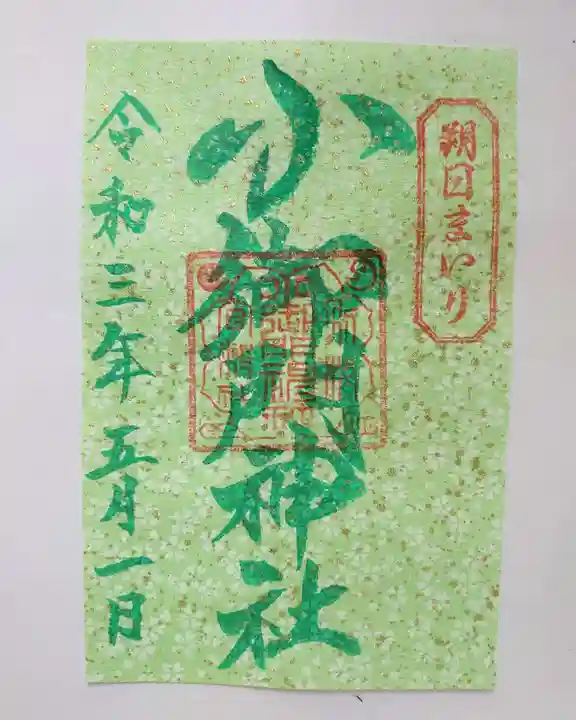 朔日まいり
小御門神社
令和三年五月一日